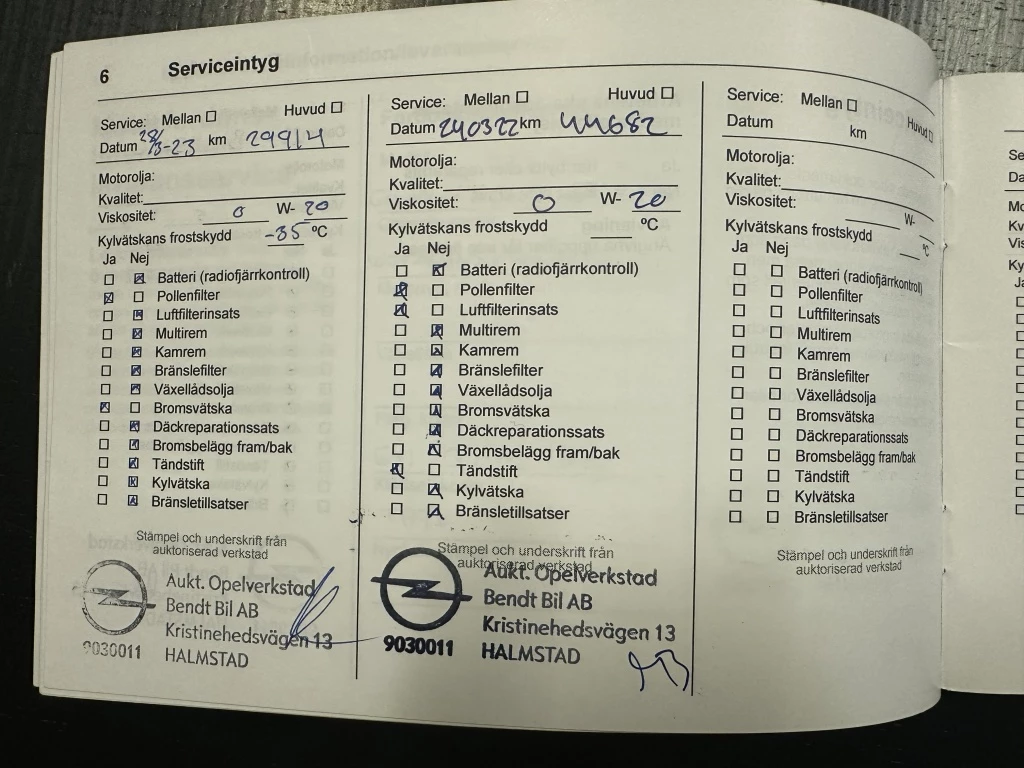 6 Serviceintyg
Service: Mellan ☐ Huvud ☐
Datum 28/3-23 km 29914
Motorolja:
Kvalitet:
Viskositet: 0 W- 20
Kylvätskans frostskydd -35 °C
Ja Nej
☐ ☒ Batteri (radiofjärrkontroll)
☒ ☐ Pollenfilter
☐ ☒ Luftfilterinsats
☐ ☒ Multirem
☐ ☒ Kamrem
☐ ☒ Bränslefilter
☐ ☒ Växellådsolja
☒ ☐ Bromsvätska
☐ ☒ Däckreparationssats
☐ ☒ Bromsbelägg fram/bak
☐ ☒ Tändstift
☐ ☒ Kylvätska
☐ ☒ Bränsletillsatser
Stämpel och underskrift från
auktoriserad verkstad
Aukt. Opelverkstad
Bendt Bil AB
Kristinehedsvägen 13
9030011 HALMSTAD
Service: Mellan ☐ Huvud ☐
Datum 240322 km 44682
Motorolja:
Kvalitet:
Viskositet: 0 W- 20
Kylvätskans frostskydd °C
Ja Nej
☐ ☒ Batteri (radiofjärrkontroll)
☒ ☐ Pollenfilter
☒ ☐ Luftfilterinsats
☐ ☒ Multirem
☐ ☒ Kamrem
☐ ☒ Bränslefilter
☐ ☒ Växellådsolja
☐ ☒ Bromsvätska
☐ ☒ Däckreparationssats
☐ ☒ Bromsbelägg fram/bak
☒ ☐ Tändstift
☐ ☒ Kylvätska
☐ ☒ Bränsletillsatser
Stämpel och underskrift från
auktoriserad verkstad
Aukt. Opelverkstad
Bendt Bil AB
Kristinehedsvägen 13
9030011 HALMSTAD
Service: Mellan ☐ Huvud ☐
Datum km
Motorolja:
Kvalitet:
Viskositet: W-
Kylvätskans frostskydd °C
Ja Nej
☐ ☐ Batteri (radiofjärrkontroll)
☐ ☐ Pollenfilter
☐ ☐ Luftfilterinsats
☐ ☐ Multirem
☐ ☐ Kamrem
☐ ☐ Bränslefilter
☐ ☐ Växellådsolja
☐ ☐ Bromsvätska
☐ ☐ Däckreparationssats
☐ ☐ Bromsbelägg fram/bak
☐ ☐ Tändstift
☐ ☐ Kylvätska
☐ ☐ Bränsletillsatser
Stämpel och underskrift från
auktoriserad verkstad